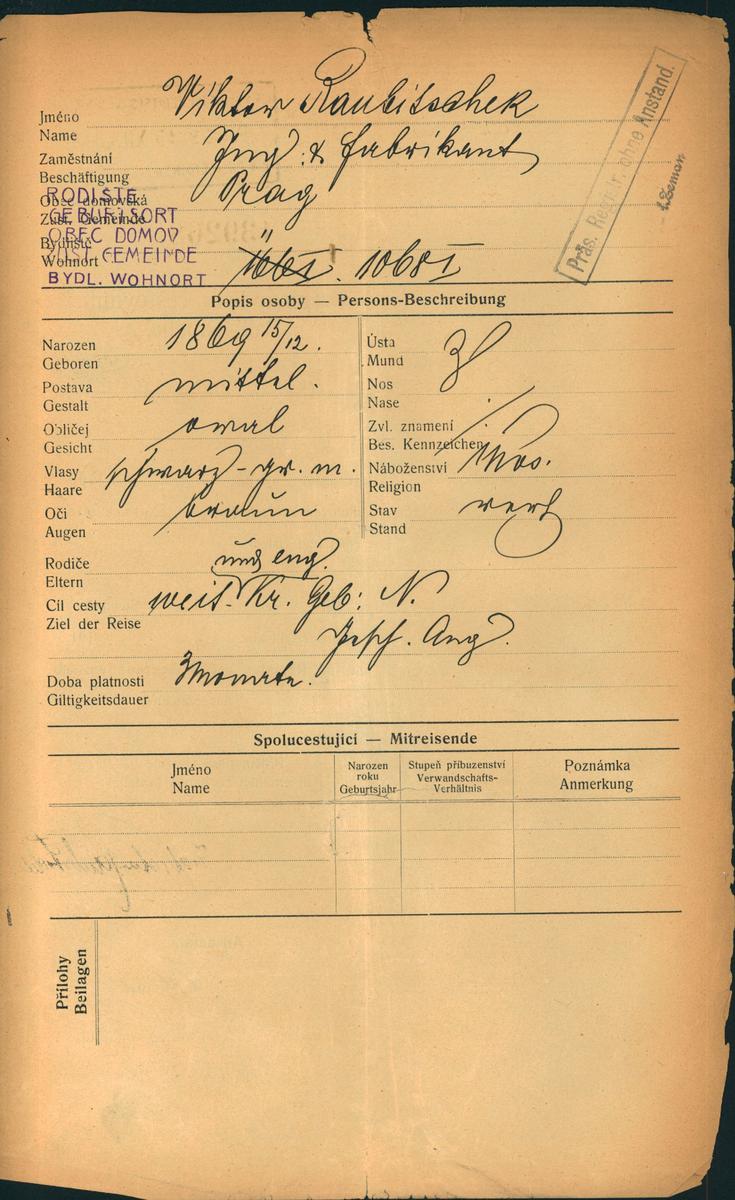 Viktor Raubitschek
Jméno
Name
Ing. & Fabrikant
Zaměstnání
Beschäftigung
Prag
Obec domovská
Zust. Gemeinde
Bydliště
Wohnort
RODIŠTE
GEBURTSORT
OBEC DOMOV
ZUST GEMEINDE
BYDL. WOHNORT
" 1068 I
Präs. Regstr. ohne Anstand.
Zeman
Popis osoby — Persons-Beschreibung
Narozen
Geboren
1869 15/12.
Postava
Gestalt
mittel.
Obličej
Gesicht
oval
Vlasy
Haare
schwarz-gr. m.
Oči
Augen
braun
Ústa
Mund
Nos
Nase
Zvl. znamení
Bes. Kennzeichen
Náboženství
Religion
Mos.
Stav
Stand
verh
Rodiče
Eltern
und eng.
Cíl cesty
Ziel der Reise
Kr. Geb: N.
Gesch. Ang.
Doba platnosti
Giltigkeitsdauer
3 Monate.
Spolucestující — Mitreisende
Jméno
Name
Narozen
roku
Geburtsjahr
Stupeň příbuzenství
Verwandschafts-
Verhältnis
Poznámka
Anmerkung
Přílohy
Beilagen